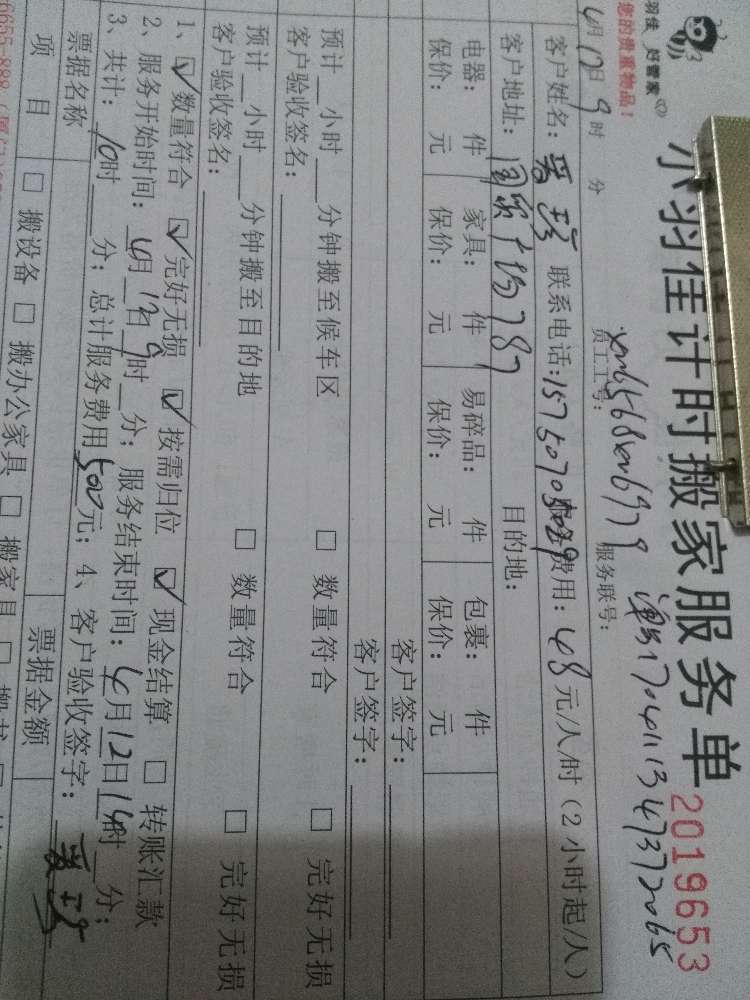 羽佳 好管家
您的贵重物品！
小羽佳计时搬家服务单
2019653
员工工号：xm6568xm6979 服务联号：
4月12日9时 分
客户姓名： 联系电话：15750705029 费用：48元/人/时（2小时起/人）
客户地址： 目的地：
电器： 件 家具： 件 易碎品： 件 包裹： 件
保价： 元 保价： 元 保价： 元 保价： 元
客户签字：
客户签字：
预计 小时 分钟搬至候车区 □ 数量符合 □ 完好无损
客户验收签名：
预计 小时 分钟搬至目的地 □ 数量符合 □ 完好无损
客户验收签名：
1、☑ 数量符合 ☑ 完好无损 ☑ 按需归位 ☑ 现金结算 □ 转账汇款
2、服务开始时间：4月12日9时 分；服务结束时间：4月12日14时 分；
3、共计：10时 分；总计服务费用500元；4、客户验收签字：
票据名称 票据金额
项 目 □ 搬设备 □ 搬办公家具 □ 搬家具